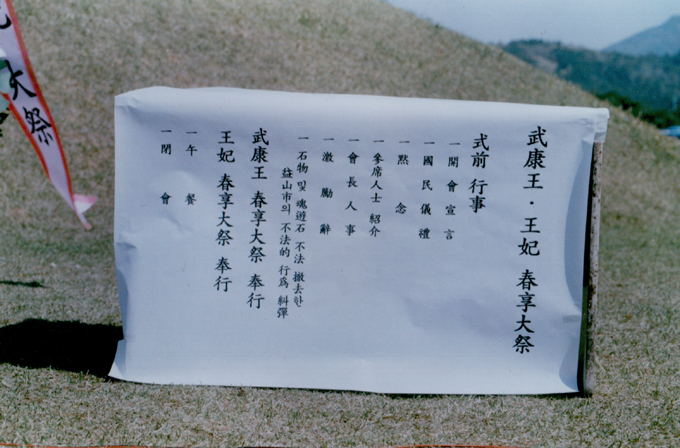 武康王 · 王妃 春享大祭
式前 行事
一 開 會 宣 言
一 國 民 儀 禮
一 黙 念
一 參席人士 紹介
一 會 長 人 事
一 激 勵 辭
一 石物 및 魂遊石 不法 撤去한
益山市의 不法的 行爲 糾彈
武康王 春享大祭 奉行
王妃 春享大祭 奉行
一 午 餐
一 閉 會
大祭